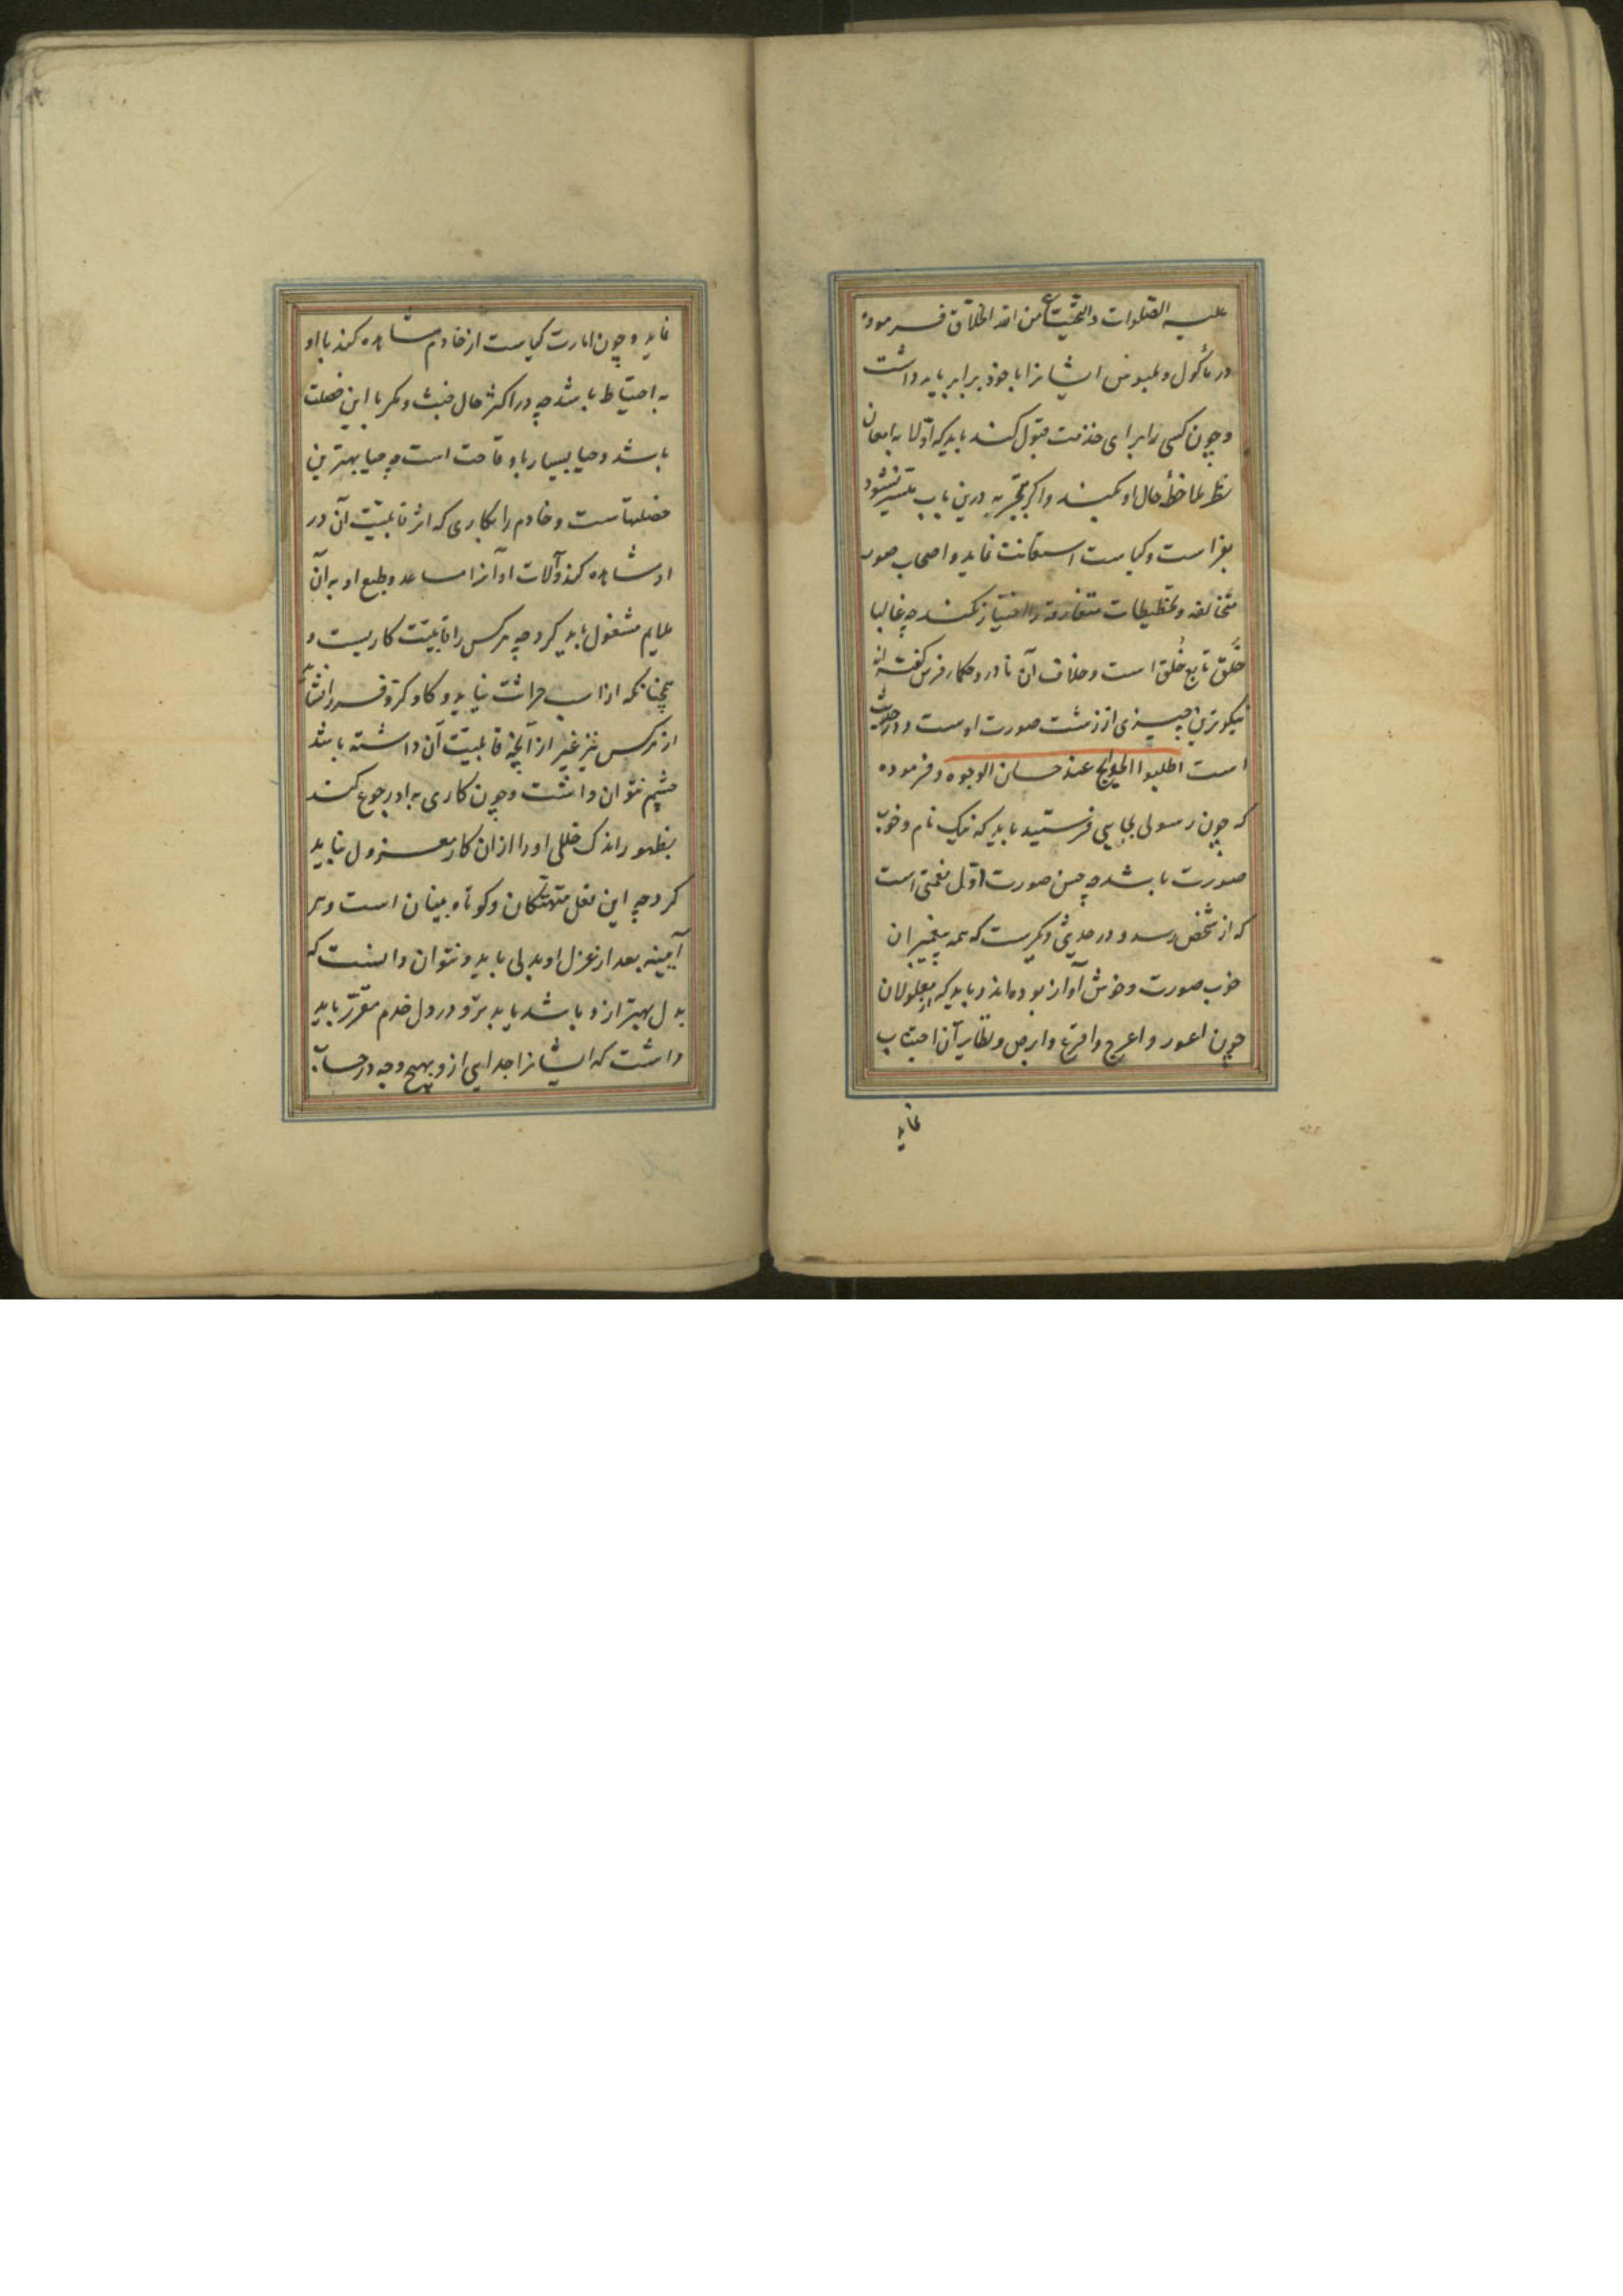 علیه الصلوات والتحیات من الله الخلاق فرموده
در مأکول و ملبوس ایشانرا با خود برابر باید داشت
و چون کسی را برای خدمت قبول کنند باید که اولا به امعان
نظر ملاحظهٔ حال او بکنند و اگر تجربه درین باب متیسر نشود
بفراست و کیاست استعانت نماید و اصحاب صور
متخالفه و تخطیطات متفاوته را اختیار نکنند چه غالبا
خَلق تابع خُلق است و خلاف آن نادر و حکماء فرس گفته‌اند
نیکوترین چیزی از زشت صورت اوست و در حدیث
است اطلبوا الحوایج عند حسان الوجوه و فرموده
که چون رسولی بجایی فرستید باید که نیک نام و خوب
صورت باشد چه حسن صورت اول نعمتی است
که از شخص رسد و در حدیثی دیگرست که همه پیغمبران
خوب صورت و خوش آواز بوده‌اند و باید که از معلولان
چون اعور و اعرج و اقرع و ابرص و نظایر آن اجتناب
نماید
نماید و چون امارت کیاست از خادم مشاهده کند با او
به احتیاط باشد چه در اکثر حال خبث و مکر با این خصلت
باشد و حیا بسیار با وقاحت است چه حیا بهترین
خصلتهاست و خادم را بکاری که اثر قابلیت آن در
او مشاهده کند و آلات او آنرا مساعد و طبع او به آن
ملایم مشغول باید کرد چه هر کس را قابلیت کاریست و
همچنانکه از اسب حراثت نیاید و گاو کر و فر را نشاید
از هر کس نیز غیر از آنچه قابلیت آن داشته باشد
چشم نتوان داشت و چون کاری به او رجوع کنند
بظهور اندک خللی او را از ان کار معزول نباید
کرد چه این فعل متهتکان و کوتاه بینان است و هر
آیینه بعد از عزل او بدلی باید و نتوان دانست که
بدل بهتر از و باشد یا بدتر و در دل خدم مقرر باید
داشت که ایشانرا جدایی از و بهیچ وجه در حساب